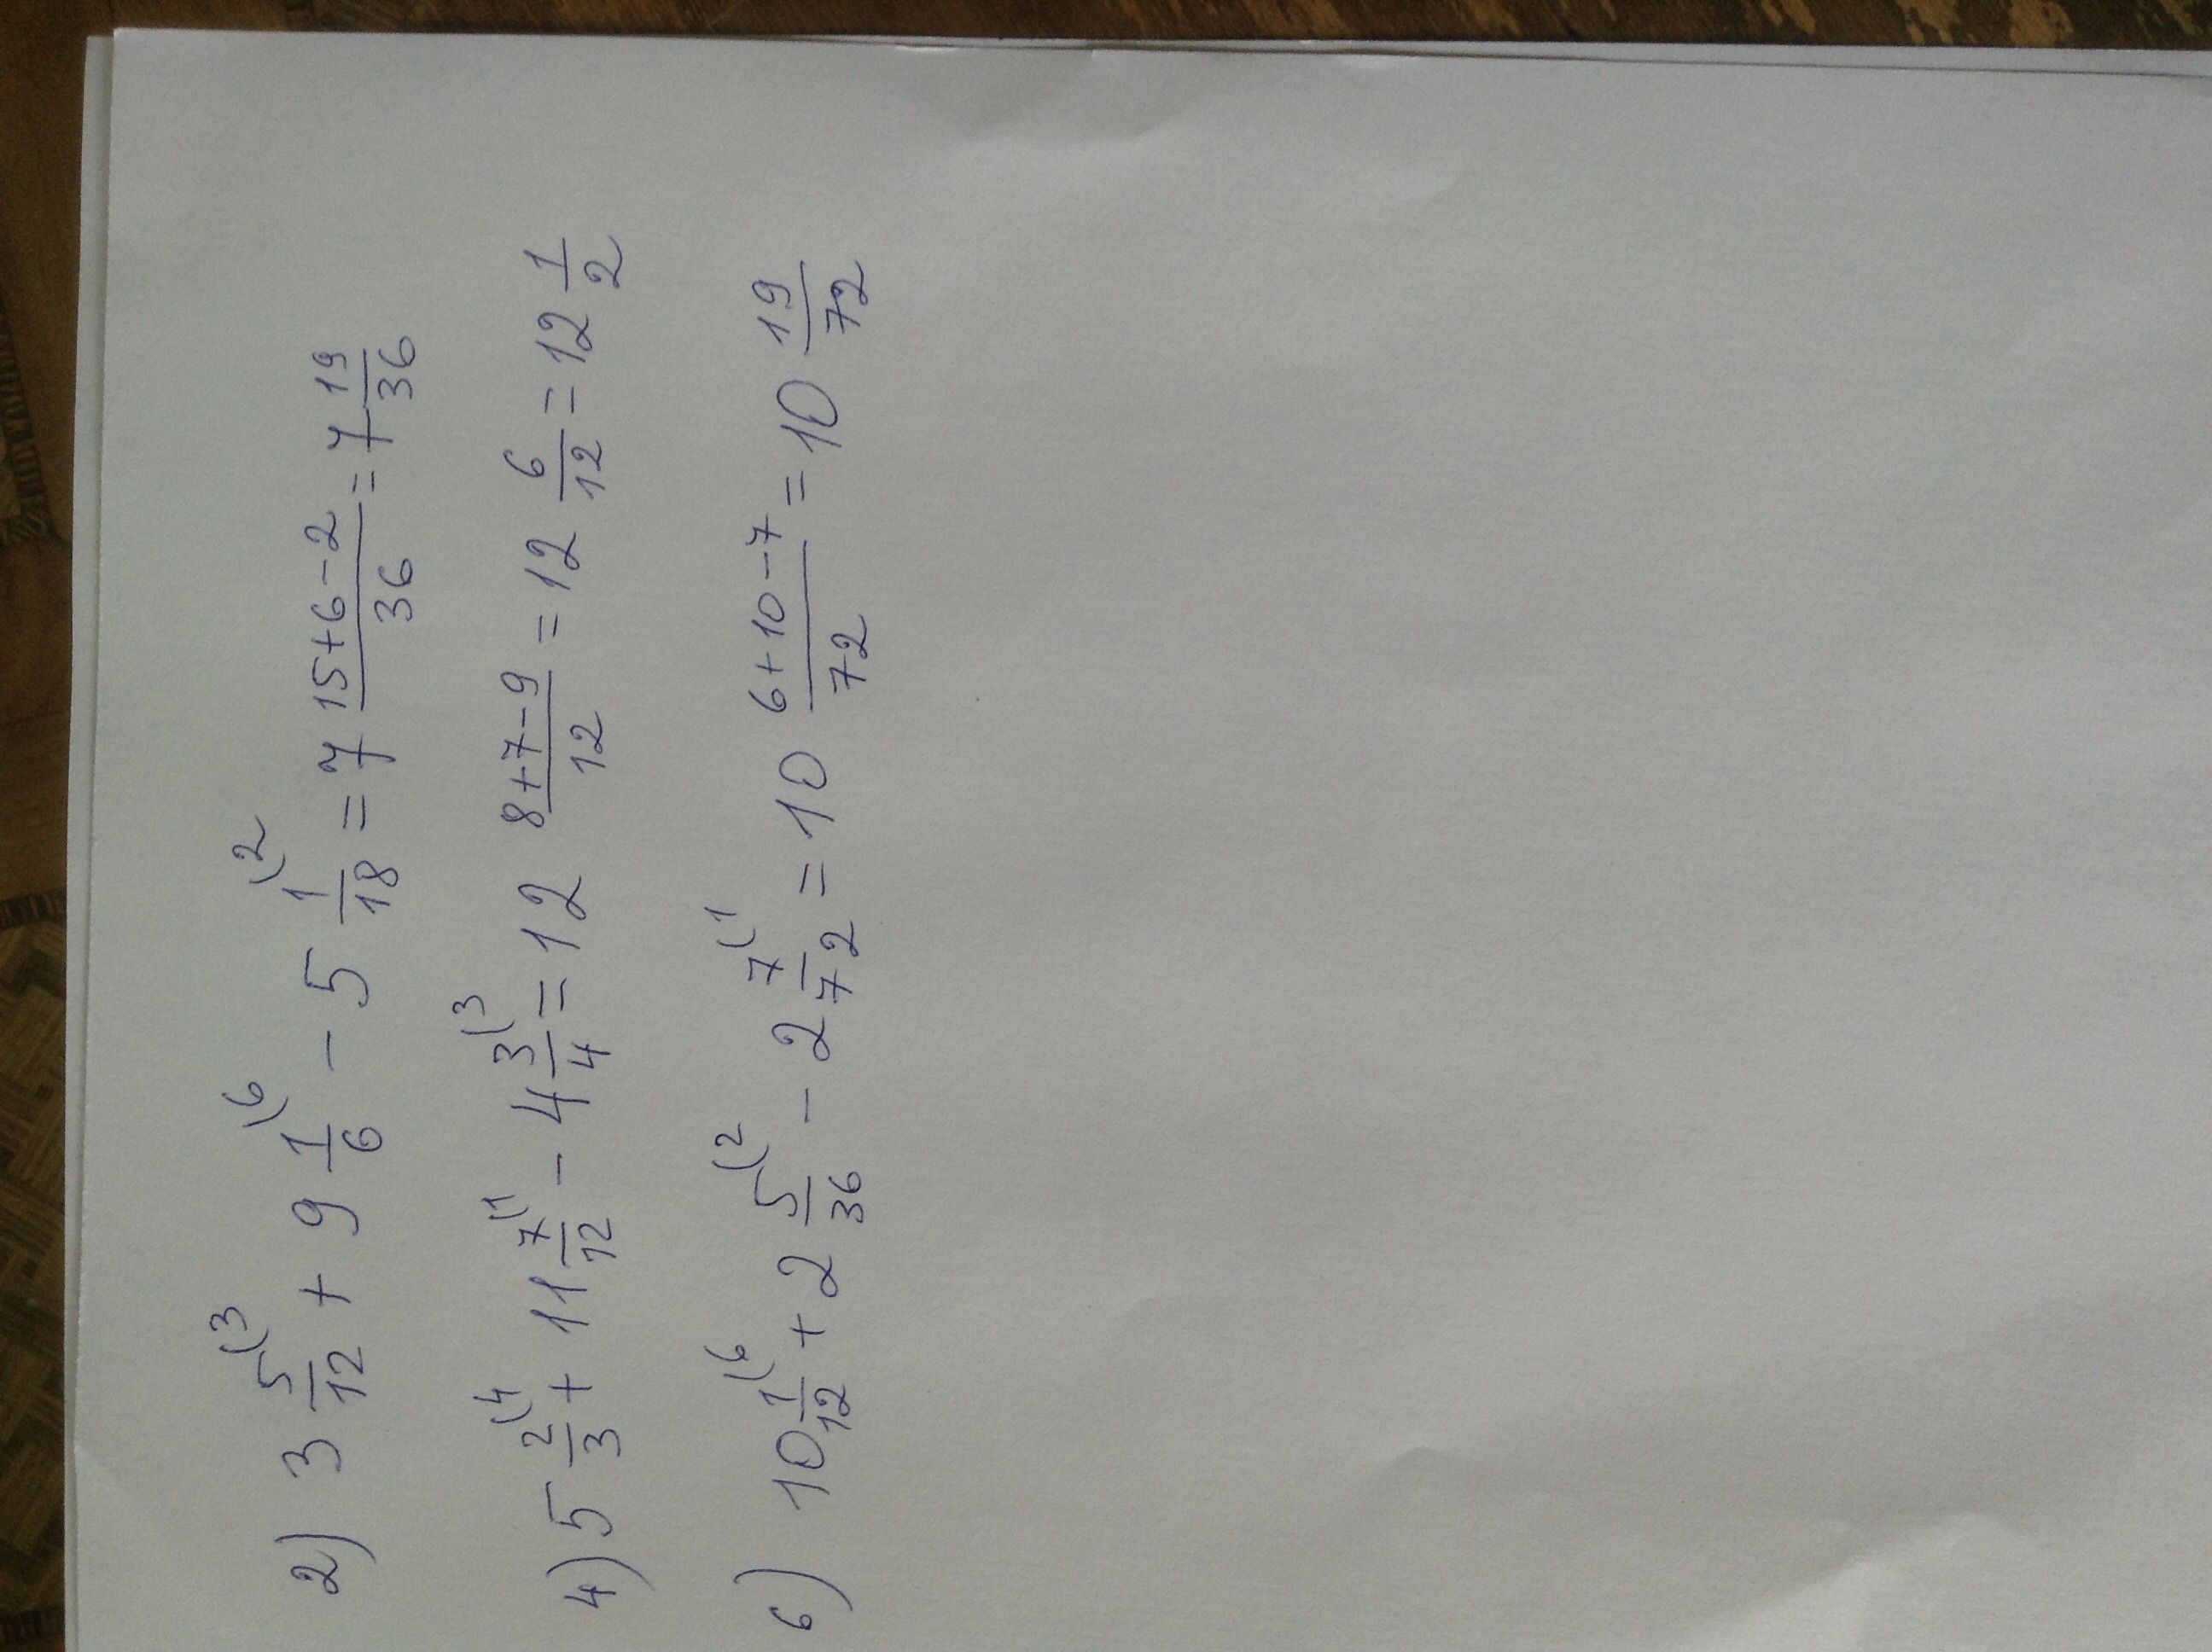 2) 3 5/12 (3 + 9 1/6 (6 - 5 1/18 (2 = 7 15+6-2/36 = 7 19/36
4) 5 2/3 (4 + 11 7/12 (1 - 4 3/4 (3 = 12 8+7-9/12 = 12 6/12 = 12 1/2
6) 10 1/12 (6 + 2 5/36 (2 - 2 7/72 (1 = 10 6+10-7/72 = 10 19/72